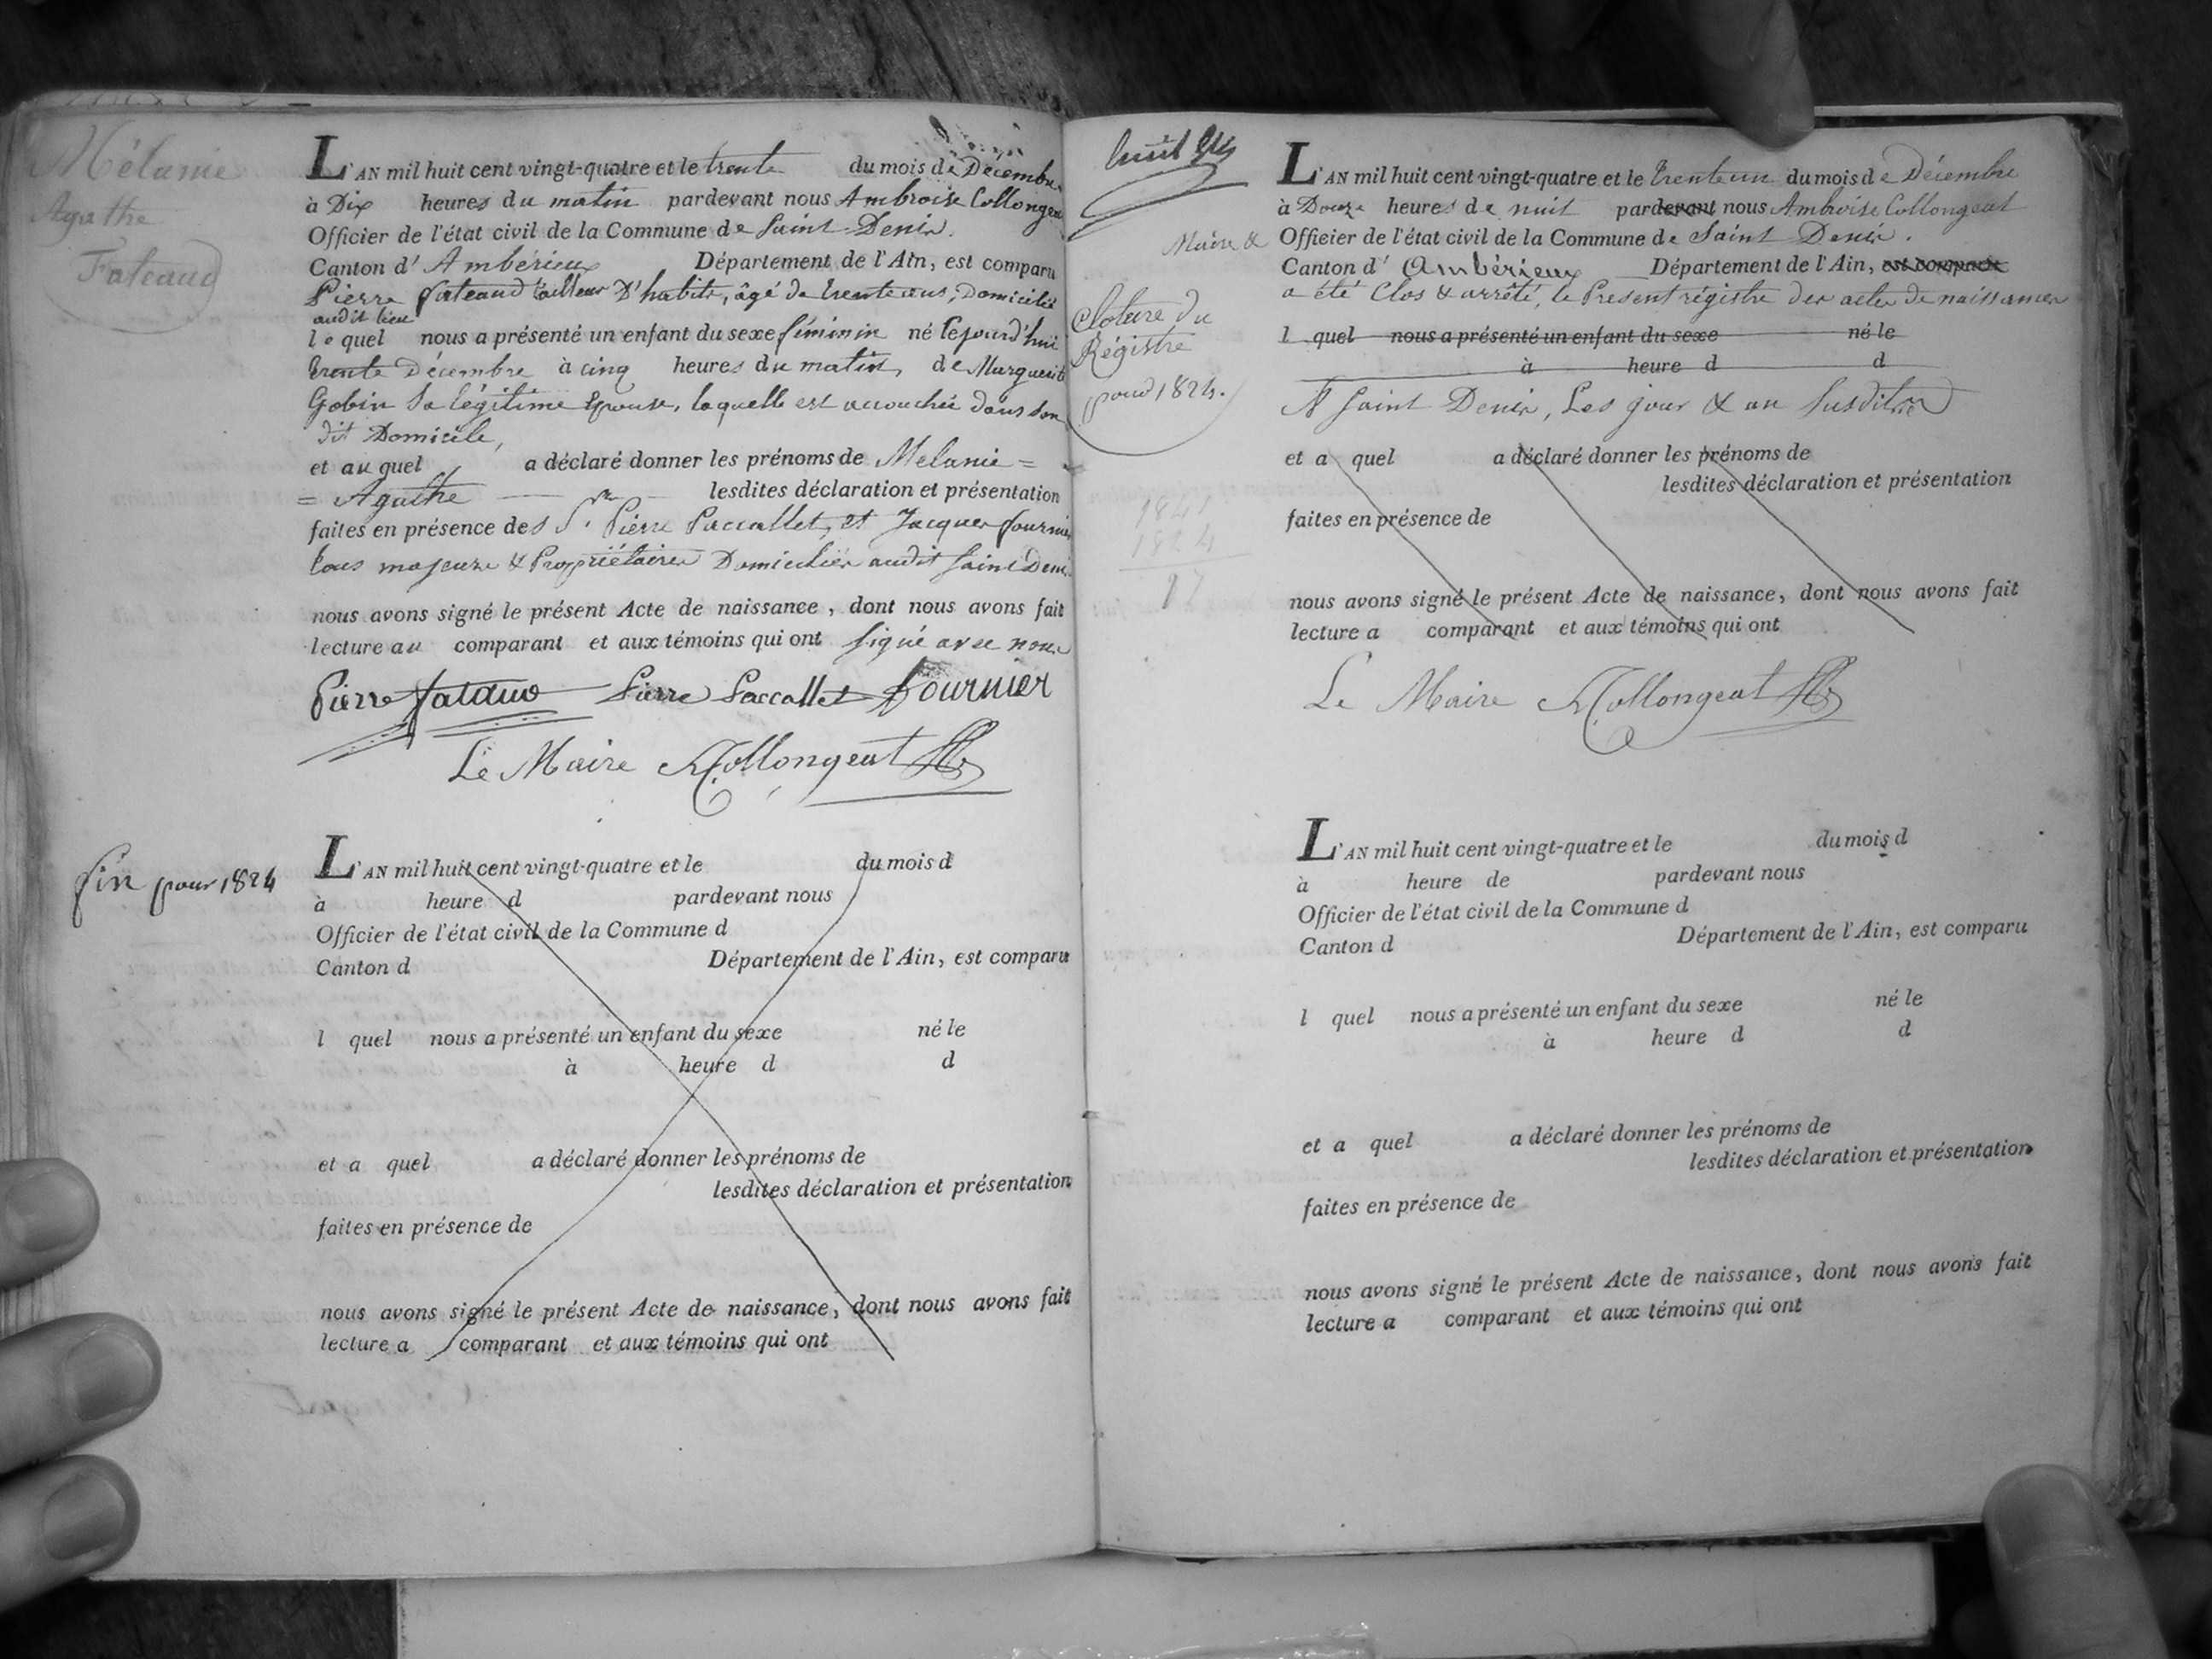 Mélanie
Agathe
Fateaud
L'AN mil huit cent vingt-quatre et le trente du mois de Décembre
à Dix heures du matin pardevant nous Ambroise Collongeat
Officier de l'état civil de la Commune de Saint Denis.
Canton d'Ambérieux Département de l'Ain, est comparu
Pierre fateaud tailleur D'habits, âgé de trente ans, Domicilié
audit lieu
lequel nous a présenté un enfant du sexe féminin né Cejourd'hui
trente Décembre à cinq heures du matin, de Marguerite
Gobin Sa légitime Epouse, laquelle est accouchée dans Son
dit Domicile,
et auquel a déclaré donner les prénoms de Melanie =
= Agathe lesdites déclaration et présentation
faites en présence des Srs. Pierre Paccallet, et Jacques fournier
tous majeurs & Propriétaires Domiciliés audit Saint Denis
nous avons signé le présent Acte de naissance, dont nous avons fait
lecture au comparant et aux témoins qui ont Signé avec nous
Pierre fataud Pierre Paccallet fournier
Le Maire Collongeat
fin pour 1824
L'AN mil huit cent vingt-quatre et le du mois d
à heure d pardevant nous
Officier de l'état civil de la Commune d
Canton d Département de l'Ain, est comparu
l quel nous a présenté un enfant du sexe né le
à heure d d
et a quel a déclaré donner les prénoms de
lesdites déclaration et présentation
faites en présence de
nous avons signé le présent Acte de naissance, dont nous avons fait
lecture a comparant et aux témoins qui ont
huit
L'AN mil huit cent vingt-quatre et le trente un du mois de Décembre
à Douze heures de nuit pardevant nous Ambroise Collongeat
Maire & Officier de l'état civil de la Commune de Saint Denis.
Canton d'Ambérieux Département de l'Ain, est comparu
a été Clos & arrêté, le Present régistre des actes de naissances
Cloture du
Régistre
pour 1824.
l quel nous a présenté un enfant du sexe né le
à heure d d
A Saint Denis, Les jour & an Susdits
et a quel a déclaré donner les prénoms de
lesdites déclaration et présentation
faites en présence de
1824
nous avons signé le présent Acte de naissance, dont nous avons fait
lecture a comparant et aux témoins qui ont
Le Maire Collongeat
L'AN mil huit cent vingt-quatre et le du mois d
à heure de pardevant nous
Officier de l'état civil de la Commune d
Canton d Département de l'Ain, est comparu
l quel nous a présenté un enfant du sexe né le
à heure d d
et a quel a déclaré donner les prénoms de
lesdites déclaration et présentation
faites en présence de
nous avons signé le présent Acte de naissance, dont nous avons fait
lecture a comparant et aux témoins qui ont